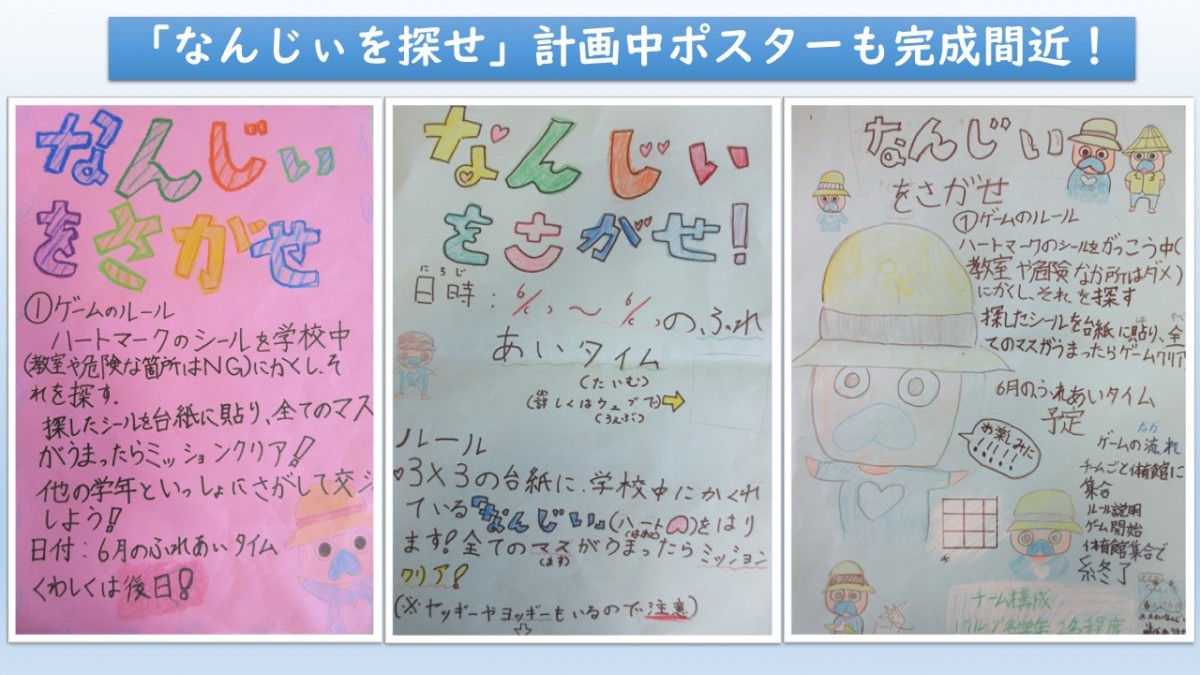 「なんじぃを探せ」計画中ポスターも完成間近！
なんじぃ
をさがせ
①ゲームのルール
ハートマークのシールを学校中
(教室や危険な箇所はNG)にかくし、そ
れを探す.
探したシールを台紙に貼り、全てのマス
がうまったらミッションクリア!
他の学年といっしょにさがして交
しよう!
日付：6月のふれあいタイム
くわしくは後日!
なんじぃ
をさがせ!
にちじ
日時：6/ 〜 6/ の ふれ
あいタイム
(たいむ)
(詳しくはウェブで)
(うぇぶ)
ルール
3×3の台紙に、学校中にかくれ
ている「なんじぃ」(ハート)をはり
(はあと)
ます!全てのマスがうまったらミッション
(ます)
クリア!
(※ヤッギーやヨッギーもいるので注意)
なんじぃ
をさがせ
①ゲームのルール
ハートマークのシールをがっこう中(
教室や危険なか所はダメ)
にかくし、それを探す
探したシールを台紙に貼り、全
てのマスがうまったらゲームクリア
6月のふれあいタイム
予定
お楽しみに
!!!!!
なが
ゲームの流れ
チームごと体育館に
集合
ルール説明
ゲーム開始
体育館集合で
終了
チーム構成
1グループ各学年2名程度